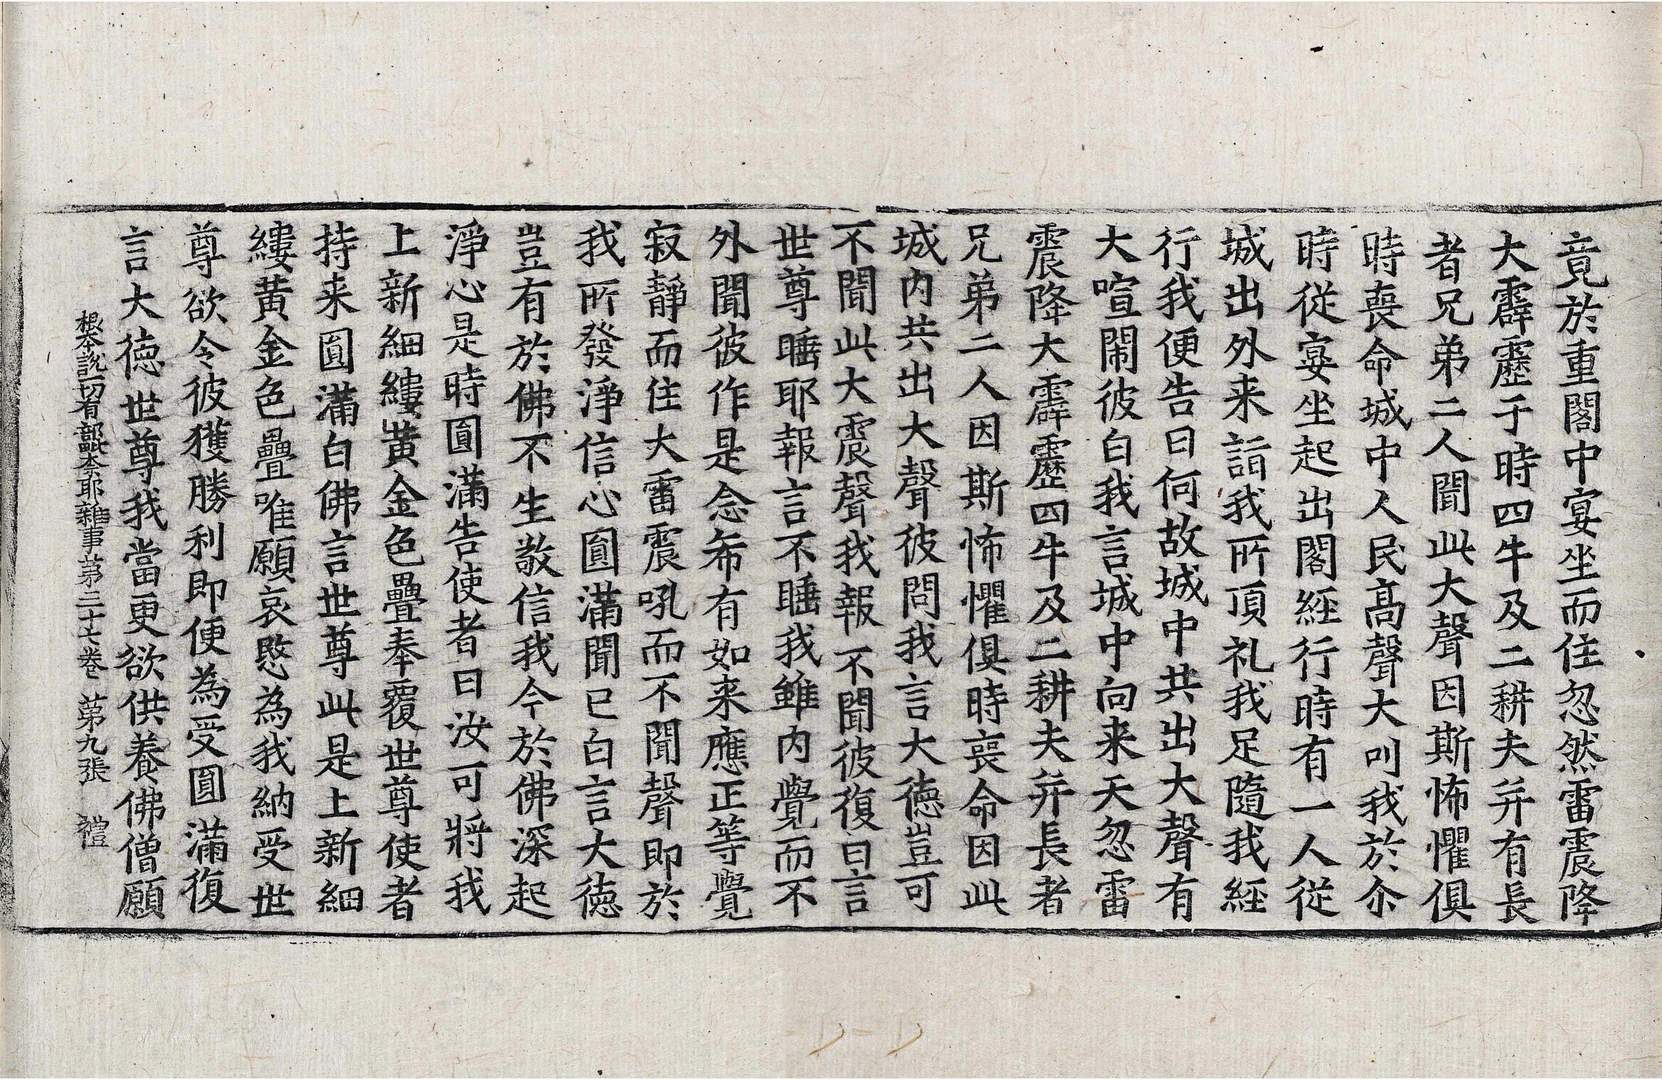 竟於重閣中宴坐而住忽然雷震降
大霹靂于時四牛及二耕夫并有長
者兄弟二人聞此大聲因斯怖懼俱
時喪命城中人民高聲大叫我於尒
時從宴坐起出閣經行時有一人從
城出外来詣我所頂礼我足隨我經
行我便告曰何故城中共出大聲有
大喧閙彼白我言城中向来天忽雷
震降大霹靂四牛及二耕夫并長者
兄弟二人因斯怖懼俱時喪命因此
城内共出大聲彼問我言大德豈可
不聞此大震聲我報不聞彼復白言
世尊睡耶報言不睡我雖内覺而不
外聞彼作是念希有如来應正等覺
寂靜而住大雷震吼而不聞聲即於
我所發淨信心圓滿聞已白言大德
豈有於佛不生敬信我今於佛深起
淨心是時圓滿告使者曰汝可將我
上新細縷黃金色疊奉覆世尊使者
持来圓滿白佛言世尊此是上新細
縷黃金色疊唯願哀愍為我納受世
尊欲令彼獲勝利即便為受圓滿復
言大德世尊我當更欲供養佛僧願
根本說一切有部毗奈耶雜事第三十七卷 第九張 禮